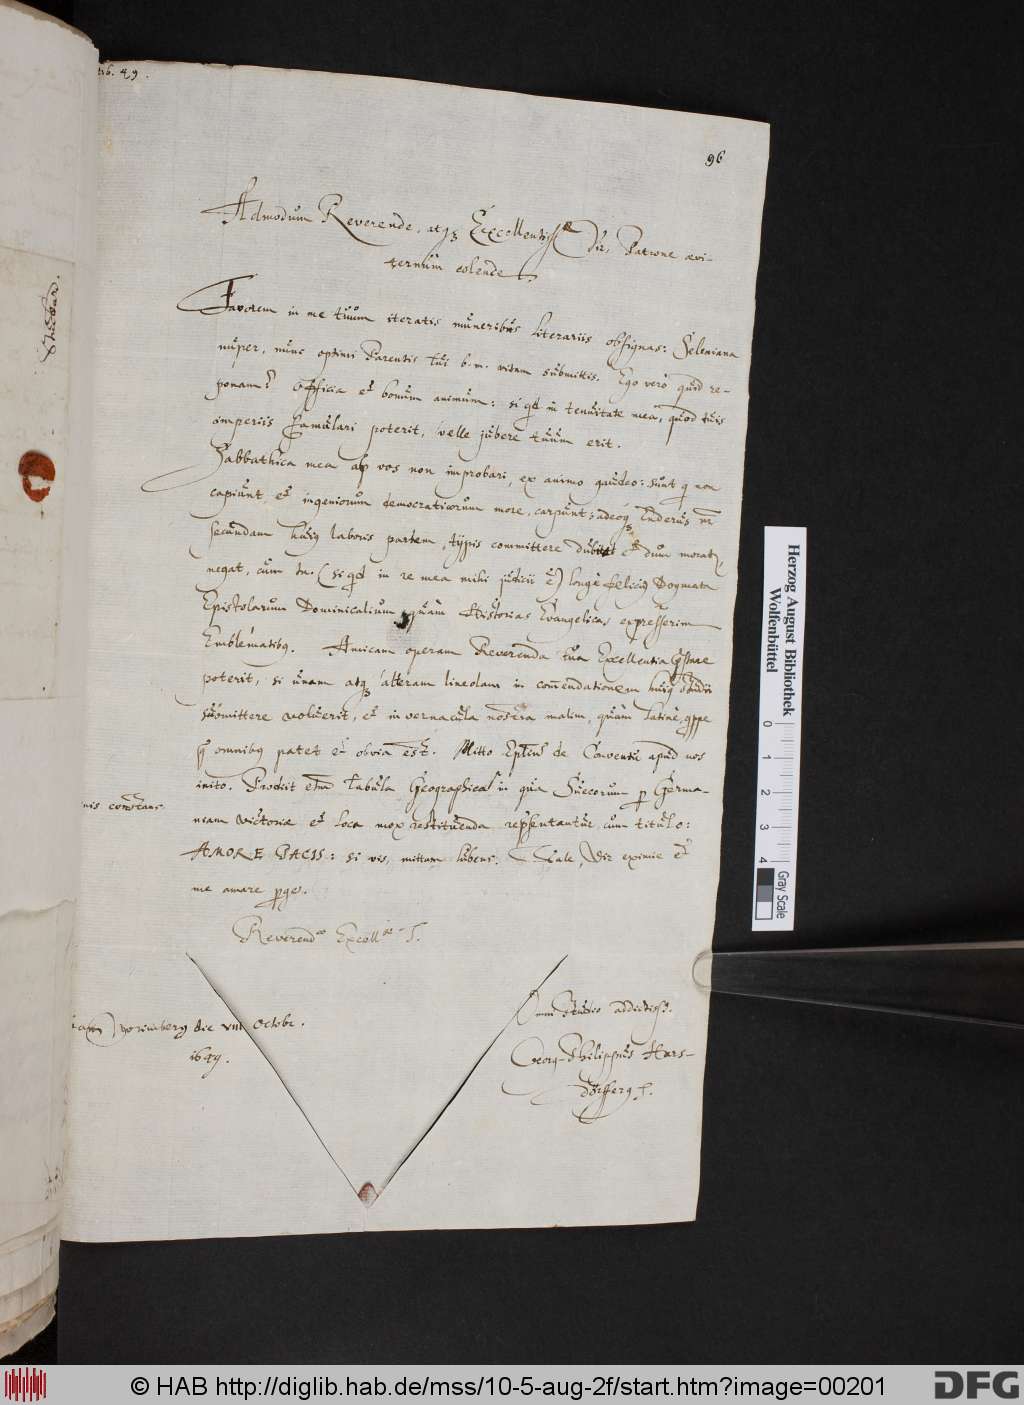 96
Admodum Reverende, atq; Excellentiss. Vir, Patrone aevi-
ternùm colende.
Favorem in me tuum iteratis muneribus literariis obsignas: Seleniana
nuper, nunc optimi Parentis tui b.m. vitam submittis. Ego verò quid re-
ponam? Officia et bonum animum: si qd in tenuitate mea, quod tuis
imperiis famulari poterit, velle jubere tuum erit.
Sabbathica mea ab vos non improbari, ex animo gaudeo: sunt q non
capiunt, et ingeniorum democraticorum more, carpunt: adeoq; Enderus nr
secundam huiq laboris partem, typis committere dubitet et dum morat,
negat, cum tn. (si qd in re mea mihi judicii e) longè feliciq Dogmata
Epistolarum Dominicalium quàm Historias Evangelicas expresserim
Emblematibq. Amicam operam Reverenda tua Excellentia
poterit, si unam atq; alteram lineolam in comendationem huiq studii
submittere voluerit, et in vernacula nostra malim, quàm Latinè, qppe
q omnibq patet et obvia est. Mitto de Conventu apud nos
inito. Prodiit etm Tabula Geographica in qua Suecorum p Germa-
niam victoriae et loca mox restituenda repsentantur, cum titulo:
AMORE PACIS: si vis, mittam lubens. Vale, Vir eximie et
me amare pges.
Reverend Excell T.
Norimberg die VIII Octobr.
1649.
Omni studio addictiss.
Georg-Philippus Hars-
dörfferq
Herzog August Bibliothek
Wolfenbüttel
0 1 2 3 4
Gray Scale
© HAB http://diglib.hab.de/mss/10-5-aug-2f/start.htm?image=00201
DFG